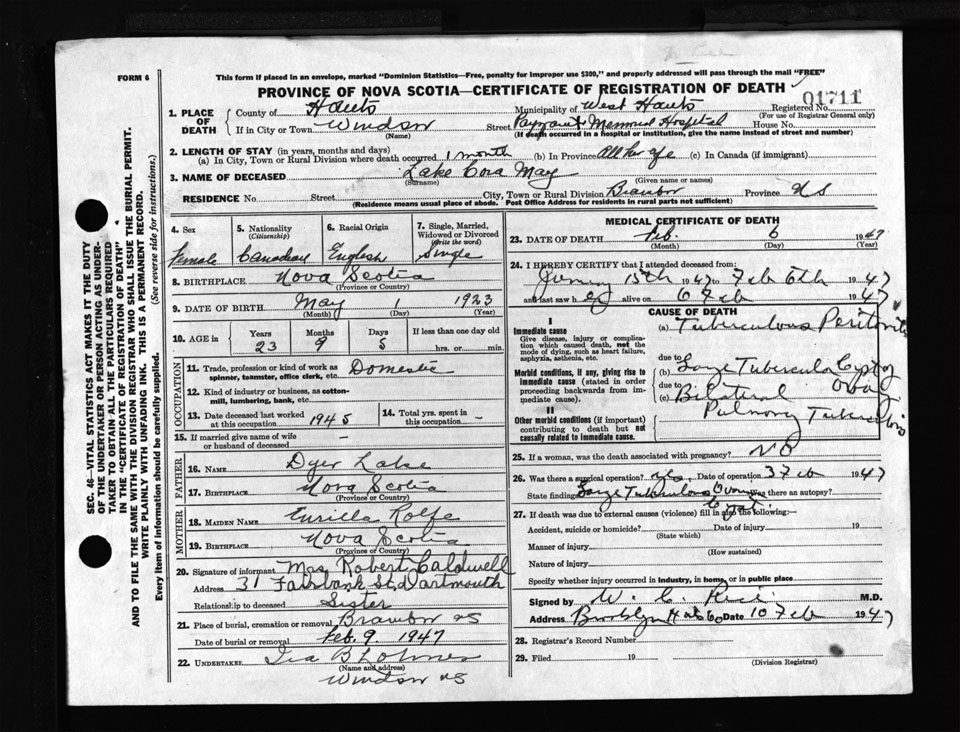 FORM 6
This form if placed in an envelope, marked "Dominion Statistics—Free, penalty for improper use $300," and properly addressed will pass through the mail "FREE"
PROVINCE OF NOVA SCOTIA—CERTIFICATE OF REGISTRATION OF DEATH
01711
1. PLACE OF DEATH
County of Hants Municipality of West Hants Registered No.
(For use of Registrar General only)
If in City or Town Windsor Street Payzant Memorial Hospital House No.
(Name) (If death occurred in a hospital or institution, give the name instead of street and number)
2. LENGTH OF STAY (in years, months and days)
(a) In City, Town or Rural Division where death occurred 1 month (b) In Province All her life (c) In Canada (if immigrant)
3. NAME OF DECEASED Lake Cora May
(Surname) (Given name or names)
RESIDENCE No. Street City, Town or Rural Division Province NS
(Residence means usual place of abode. Post Office Address for residents in rural parts not sufficient)
4. Sex Female
5. Nationality (Citizenship) Canadian
6. Racial Origin English
7. Single, Married, Widowed or Divorced (Write the word) Single
8. BIRTHPLACE Nova Scotia
(Province or Country)
9. DATE OF BIRTH May 1 1923
(Month) (Day) (Year)
10. AGE in Years 23 Months 9 Days 5 If less than one day old hrs. or min.
OCCUPATION
11. Trade, profession or kind of work as spinner, teamster, office clerk, etc. Domestic
12. Kind of industry or business, as cotton-mill, lumbering, bank, etc.
13. Date deceased last worked at this occupation 1945
14. Total yrs. spent in this occupation -
15. If married give name of wife or husband of deceased -
FATHER
16. Name Dyer Lake
17. Birthplace Nova Scotia
(Province or Country)
MOTHER
18. MAIDEN NAME Rolfe
19. BIRTHPLACE Nova Scotia
(Province or Country)
20. Signature of informant Mrs Robert Caldwell
Address 31 Fairbank St. Dartmouth
Relationship to deceased Sister
21. Place of burial, cremation or removal NS
Date of burial or removal Feb. 9. 1947
22. UNDERTAKER Ira B Lohnes
(Name and address)
Windsor NS
MEDICAL CERTIFICATE OF DEATH
23. DATE OF DEATH Feb. 6 1947
(Month) (Day) (Year)
24. I HEREBY CERTIFY that I attended deceased from:
15th 1947 to Feb 6th 1947
and last saw her alive on 6 Feb 1947
CAUSE OF DEATH
I
Immediate cause
Give disease, injury or complication which caused death, not the mode of dying, such as heart failure, asphyxia, asthenia, etc.
(a) Tuberculous Peritonitis
due to
Morbid conditions, if any, giving rise to immediate cause (stated in order proceeding backwards from immediate cause).
(b) Large Tubercular Cyst of
due to Ovary
(c) Bilateral
Pulmonary Tuberculosis
II
Other morbid conditions (if important) contributing to death but not causally related to immediate cause.
25. If a woman, was the death associated with pregnancy? NO
26. Was there a surgical operation? yes Date of operation 3 Feb 1947
State findings Large Tuberculous Ovarian Cyst Was there an autopsy?
27. If death was due to external causes (violence) fill in also the following:—
Accident, suicide or homicide? Date of injury 19
(State which)
Manner of injury
(How sustained)
Nature of injury
Specify whether injury occurred in industry, in home, or in public place
Signed by W. C. M.D.
Address Brooklyn Hants Co Date 10 Feb 1947
28. Registrar's Record Number
29. Filed 19
(Division Registrar)
SEC. 46—VITAL STATISTICS ACT MAKES IT THE DUTY
OF THE UNDERTAKER OR PERSON ACTING AS UNDER-
TAKER TO OBTAIN ALL THE PARTICULARS REQUIRED
IN THE "CERTIFICATE OF REGISTRATION OF DEATH"
AND TO FILE THE SAME WITH THE DIVISION REGISTRAR WHO SHALL ISSUE THE BURIAL PERMIT.
WRITE PLAINLY WITH UNFADING INK. THIS IS A PERMANENT RECORD.
Every item of information should be carefully supplied. (See reverse side for instructions.)